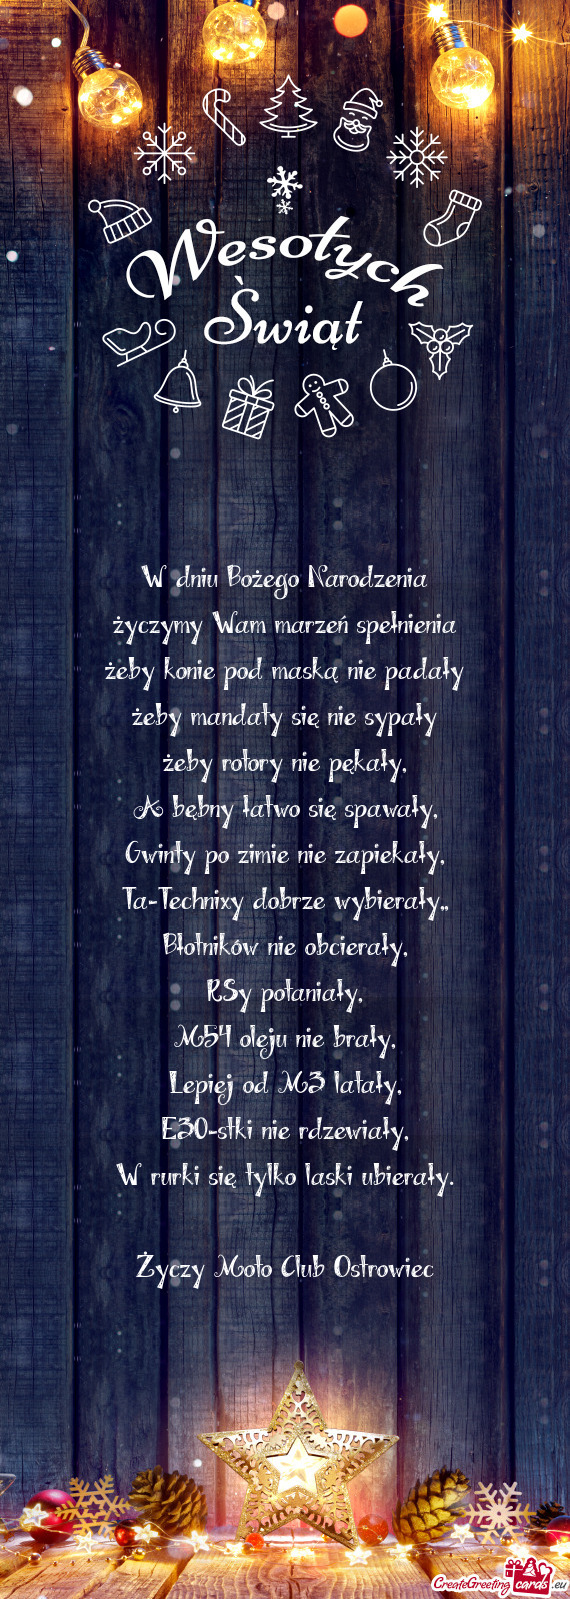 Wesołych
Świąt
W dniu Bożego Narodzenia
życzymy Wam marzeń spełnienia
żeby konie pod maską nie padały
żeby mandaty się nie sypały
żeby rotory nie pękały,
A bębny łatwo się spawały,
Gwinty po zimie nie zapiekały,
Ta-Technixy dobrze wybierały,,
Błotników nie obcierały,
RSy potaniały,
M54 oleju nie brały,
Lepiej od M3 latały,
E30-stki nie rdzewiały,
W rurki się tylko laski ubierały.
Życzy Moto Club Ostrowiec
CreateGreetingcards.eu